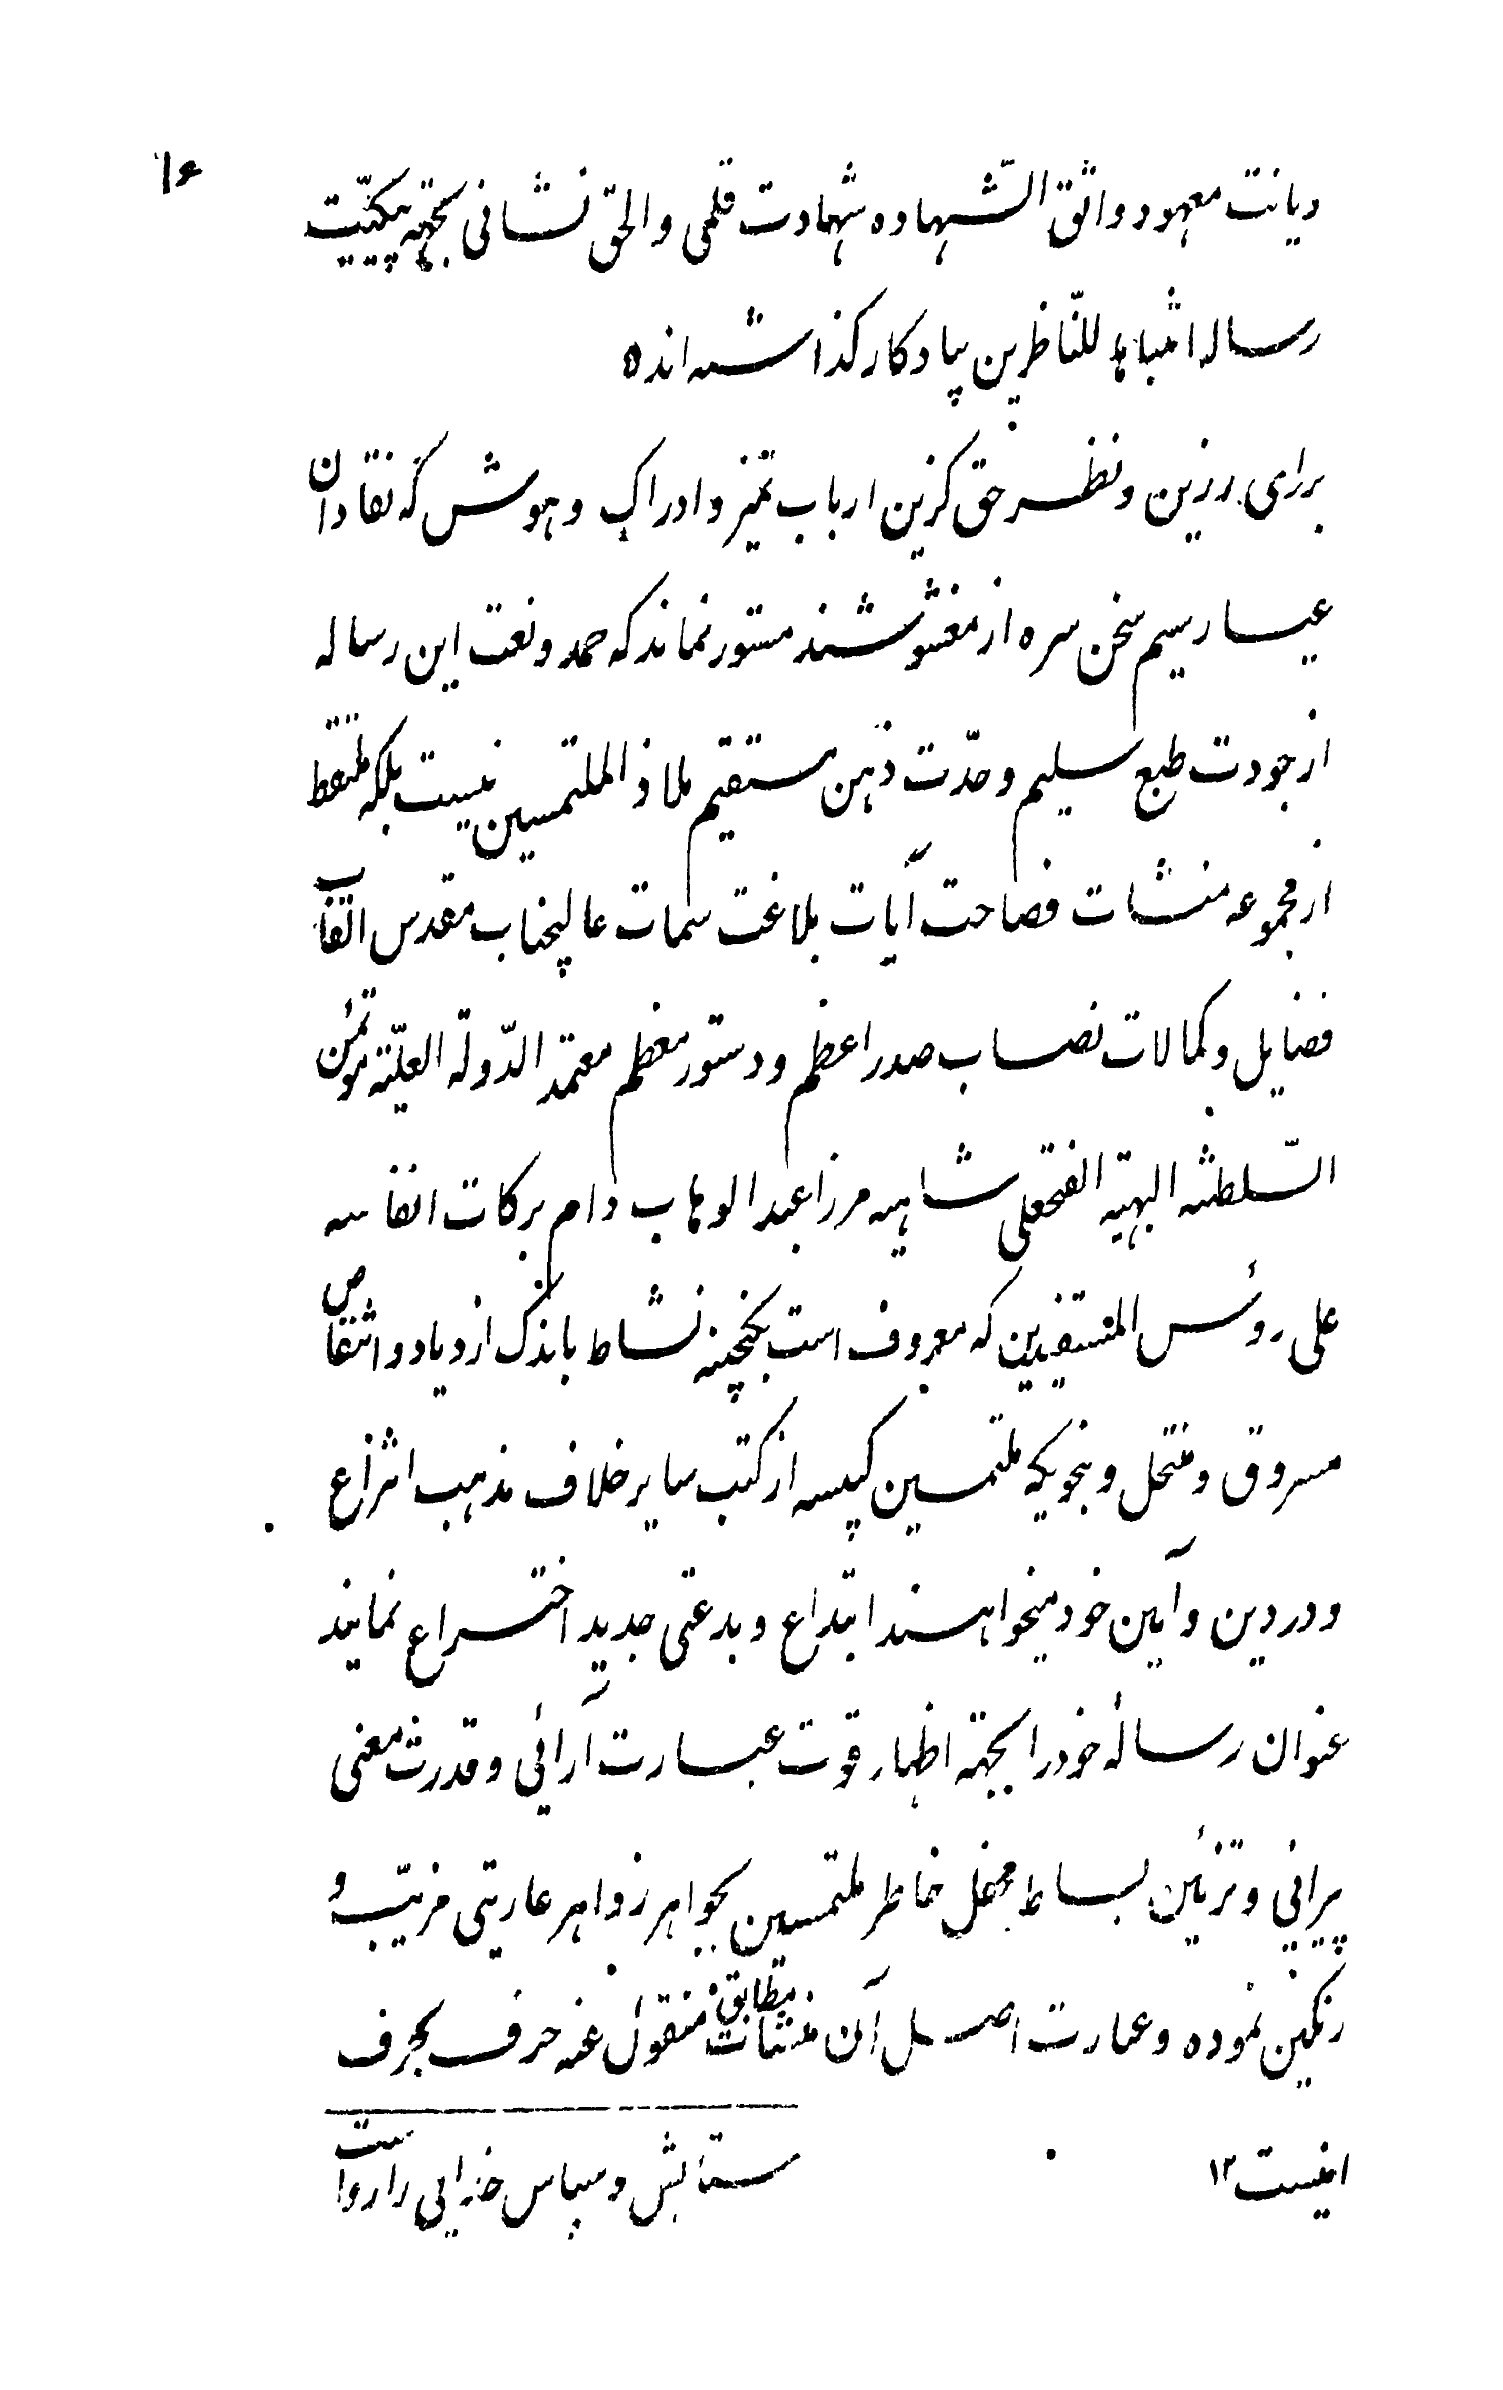 ۱۶
دیانت معهود و اثق الشّهاده شهادت قلمی و الحق نشانی بجهته تبکیت
رساله انتباها للنّاظرین بیادکار کذاشته انده
بررای رزین و نظر حق کزین ارباب تمیز و ادراک و هوش که نقادان
عیار سیم سخن سره از مغشوشند مستور نماند که حمد و نعت این رساله
از جودت طبع سلیم و حدّت ذهن مستقیم ملاذ الملتمسین نیست بلکه ملتقط
از مجموعه منشات فصاحت آیات بلاغت سمات عالیجناب مقدس القاب
فضایل و کمالات نصاب صدر اعظم و دستور معظم معتمد الدّولة العلیّه مؤتمن
السّلطنه البهیّه الفتحعلی شاهیه مرزا عبد الوهاب دام برکات انفاسه
علی رؤس المستفیدین که معروف است بکنجینه نشاط باندک ازدیاد و انتقاص
مسروق و منتحل و بنحویکه ملتمسین کیسه از کتب سایر خلاف مذهب انتزاع
و در دین و آیین خود میخواهند ابتداع و بدعتی جدید اختراع نمایند
عنوان رسالهٔ خود را بجهته اظهار قوت عبارت آرائی و قدرت معنی
پیرائی و تزئین بساط محفل خاطر ملتمسین بجواهر زواهر عاریتی مرتّب و
رنکین نموده و عبارت اصل آن منشات مطابق منقول عنه حرف بحرف
اینست ۱۲
ستایش و سپاس خدایی را رواست